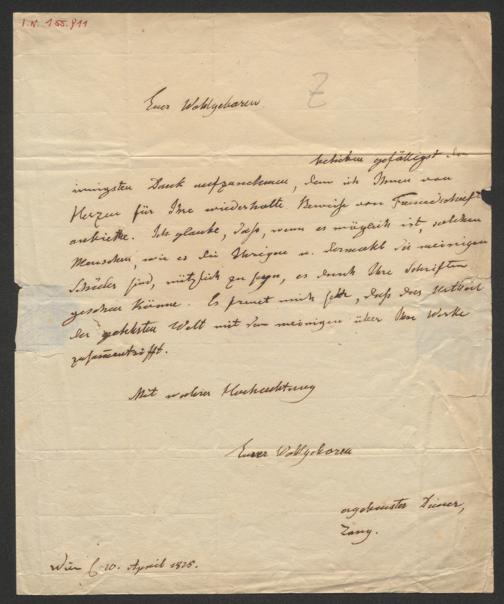 I. N. 155.911
Z
Euer Wohlgeboren
belieben gefälligst den
innigsten Dank aufzunehmen, den ich Ihnen von
Herzen für Ihre wiederholte Beweise von Freundschaft
anbiethe. Ich glaube, daß, wenn es möglich ist, solchen
Menschen, wie es die Ihrigen u. die meinigen
Brüder sind, nützlich zu seyn, es durch Ihre Schriften
geschehen könne. Es freuet mich sehr, daß das Urtheil
der gelehrten Welt mit dem meinigen über Ihre Werke
zusammentrifft.
Mit wahrer Hochachtung
Euer Wohlgeboren
ergebenster Diener,
Zang.
Wien 10. April 1825.